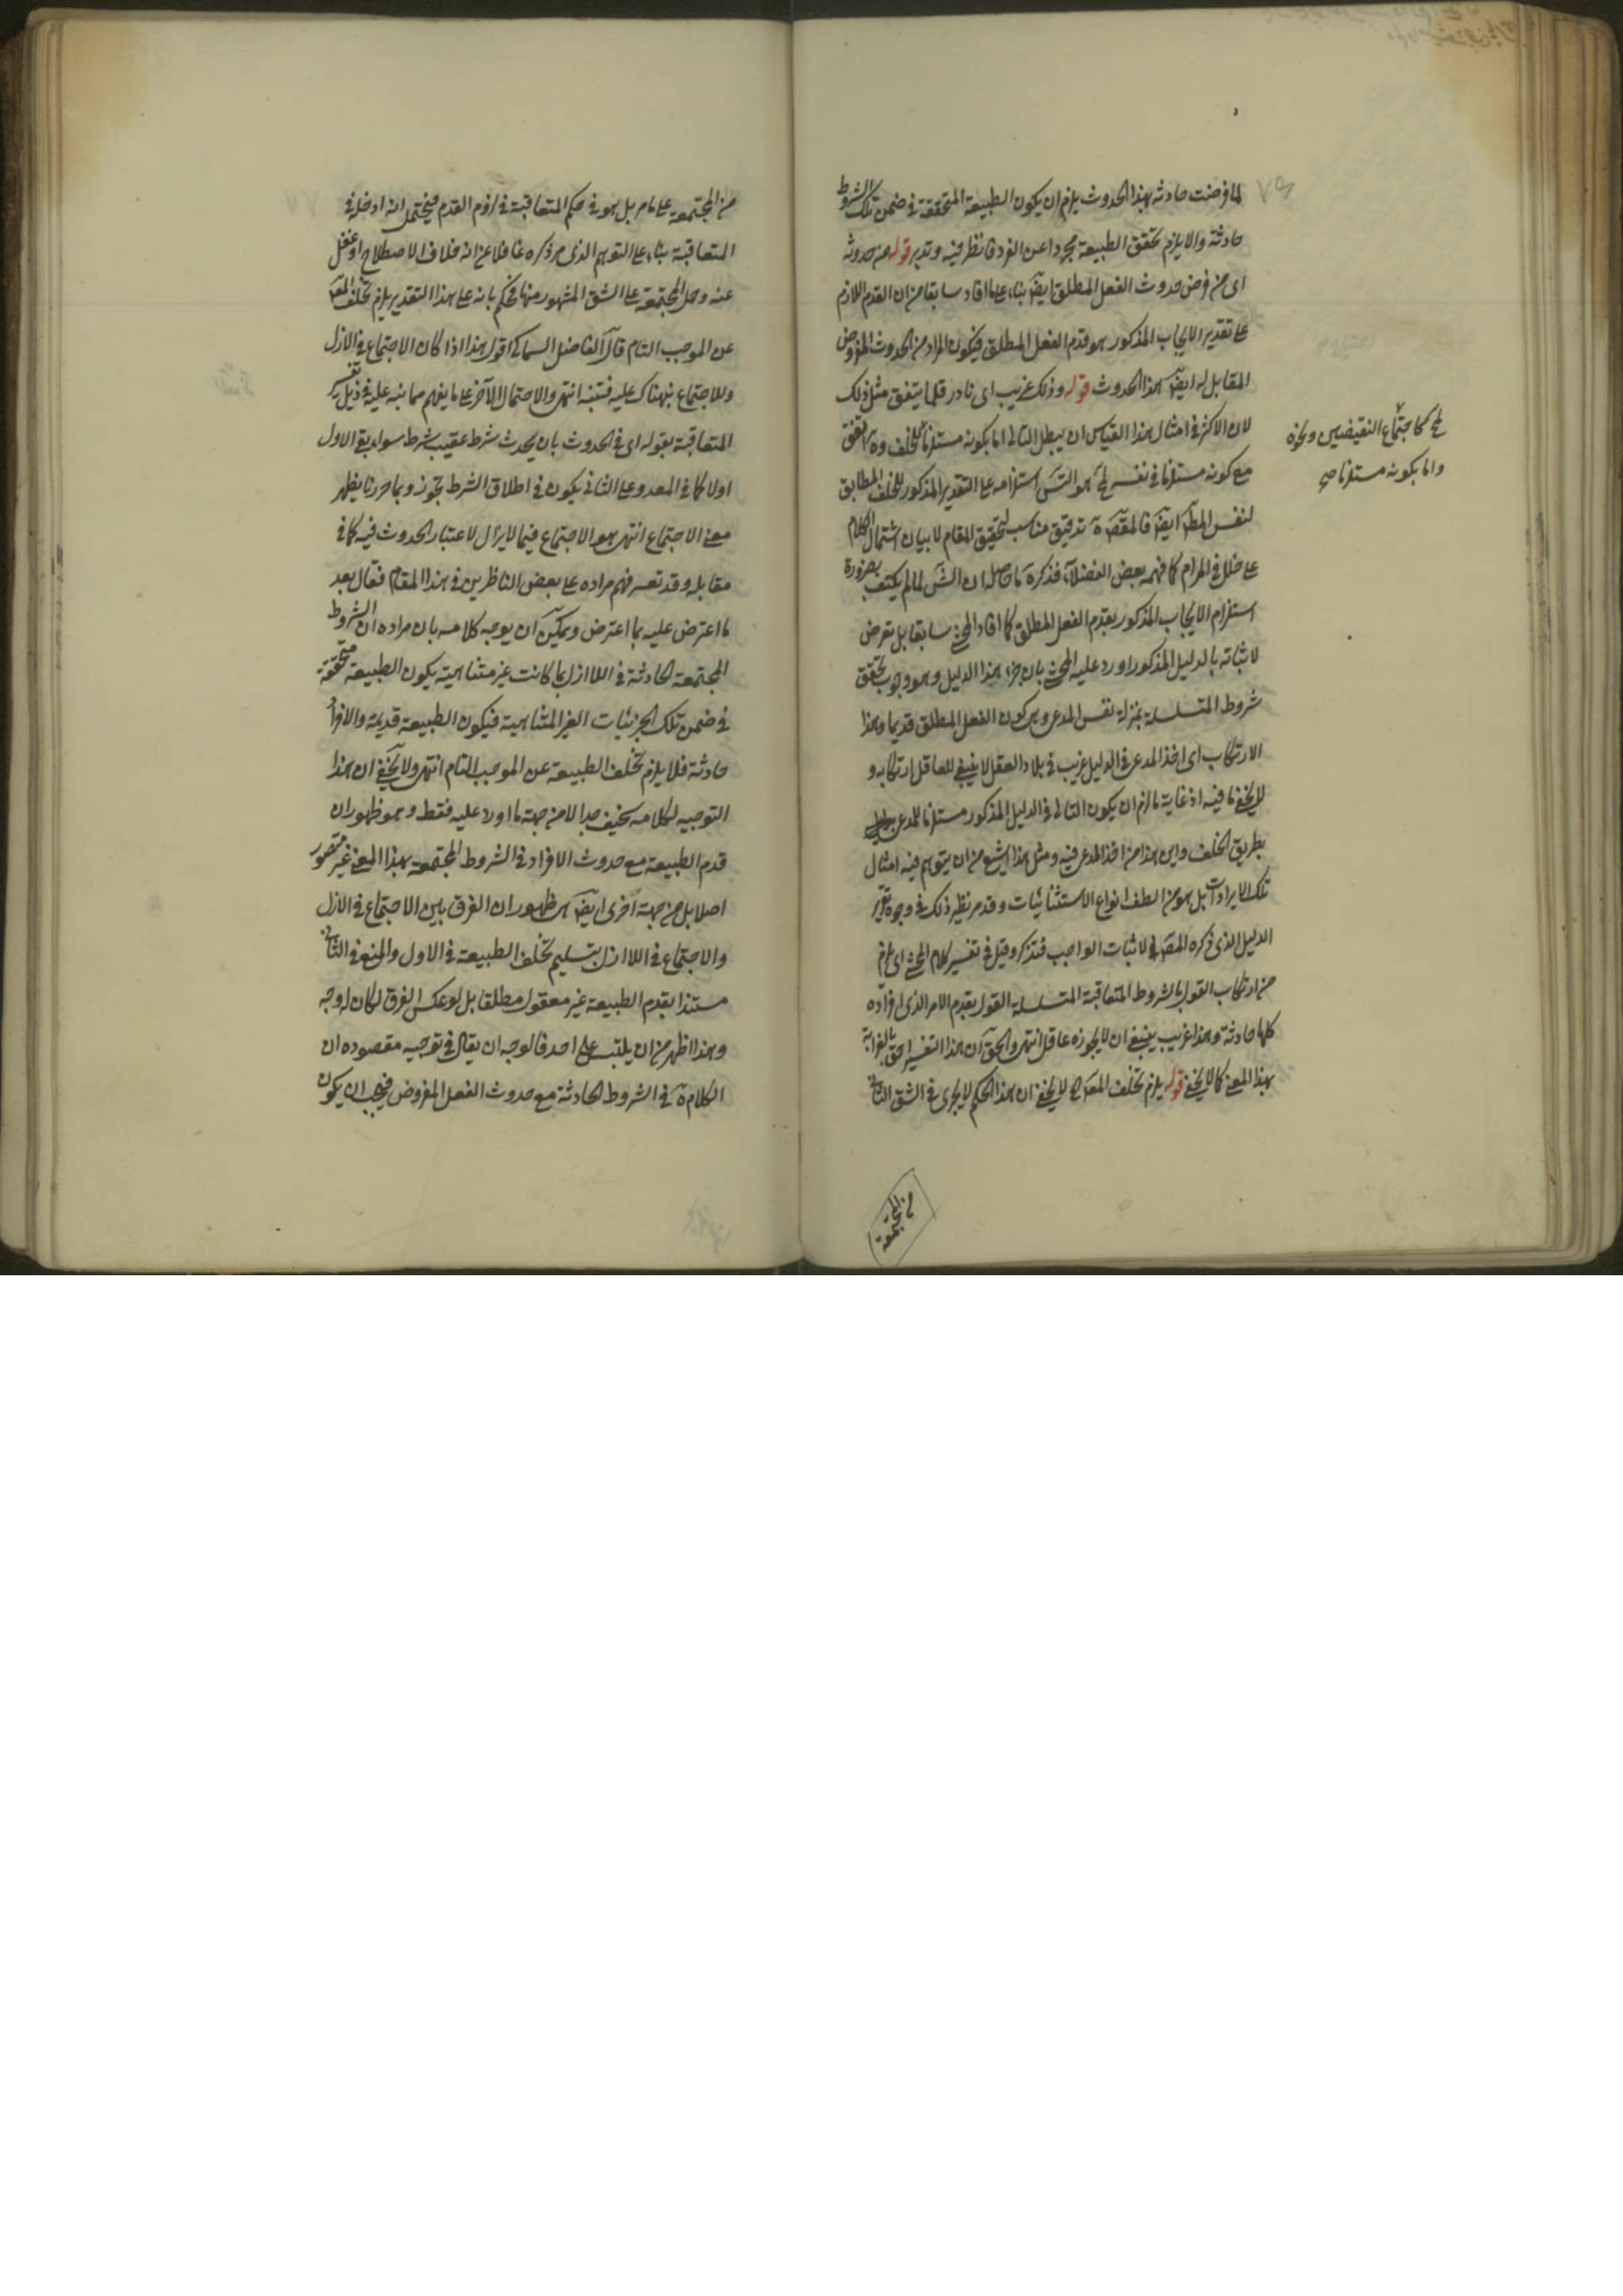 لما فرضت حادثه بهذا الحدوث يلزم ان يكون الطبيعة المتحققة في ضمن تلك الشروط
حادثة والا يلزم تحقق الطبيعة مجردا عن الفرد فانظر فيه وتدبر قوله من حدوثه
اى من فرض حدوث الفعل المطلق ايضا بناء على ما افاد سابقا من ان القدم اللازم
على تقدير الايجاب المذكور هو قدم الفعل المطلق فيكون المراد من الحدوث المفروض
المقابل له ايضا هذا الحدوث قوله وذلك غريب اى نادر قلما يتفق مثل ذلك
لان الاكثر في امثال هذا القياس ان يبطل التالى اما بكونه مستلزما للخلف
مح كاجتماع النقيضين ونحوه
واما بكونه مستلزما صح
مع كونه مستلزما في نفسه استلزامه على التقدير المذكور للخلف المطابق
لنفس المط ايضا فالمقص ة تدقيق مناسب لتحقيق المقام لا بيان اشتمال الكلام
على خلل في المرام كما فهمه بعض الفضلاء فذكر ة ما حاصله ان الش لما لم يكتف بضرورة
استلزام الايجاب المذكور بقدم الفعل المطلق كما افاد المحشى سابقا بل تعرض
لاثباته بالدليل المذكور اورد عليه المحشى بان جزء هذا الدليل وهو وجوب تحقق
شروط المتسلسلة بمنزلة نفس المدعى وهى كون الفعل المطلق قديما وهذا
الارتكاب اى اخذ المدعى في الدليل غريب في بلاد العقل لا ينبغى للعاقل ارتكابه و
لا يخفى ما فيه اذ غاية ما لزم ان يكون التالى في الدليل المذكور مستلزما للمدعى
بطريق الخلف واين هذا من اخذ المدعى فيه ومثل هذا اشيع من ان يتوهم فيه امثال
تلك الايرادات بل هو من الطف انواع الاستثنائيات وقد مر نظير ذلك في وجوه تقرير
الدليل الذى ذكره المص في لاثبات الواجب فتذكر وقيل في تفسير كلام المحشى اى يلزم
من ارتكاب القول بالشروط المتعاقبة المتسلسلة القول بقدم الامر الذى افراده
كلها حادثة وهذا غريب ينبغى ان لا يجوزه عاقل انتهى والحق ان هذا التفسير احق بالغرابة
بهذا المعنى كما لا يخفى قوله يلزم تخلف المعه الخ لا يخفى ان هذا الحكم لا يجرى في الشق الثانى
من المجتمعة
من المجتمعة على ما مر بل هو في حكم المتعاقبة في لزوم القدم فيحتمل انه ادخله في
المتعاقبة بناء على التوهم الذى مر ذكره غافلا عن انه خلاف الاصطلاح او غفل
عنه وحمل المجتمعة على الشق المشهور منها فحكم بانه على هذا التقدير يلزم تخلف المعه
عن الموجب التام قال الفاضل السماكى اقول هذا اذا كان الاجتماع في الازل
وللاجتماع نبهناك عليه فتنبه انتهى والاحتمال الآخر على ما يفهم مما نبه عليه في ذيل تفسير
المتعاقبة بقوله اى في الحدوث بان يحدث شرط عقيب شرط سواء بقى الاول
اولا كما في المعد وعلى الثانى يكون في اطلاق الشرط تجوز وبما حررنا يظهر
معنى الاجتماع انتهى هو الاجتماع فيما لا يزال لاعتبار الحدوث فيه كما في
مقابله وقد تعسر فهم مراده على بعض الناظرين في هذا المقام فقال بعد
ما اعترض عليه بما اعترض ويمكن ان يوجه كلامه بان مراده ان الشروط
المجتمعة الحادثة في اللاازل لما كانت غير متناهية يكون الطبيعة متحققة
في ضمن تلك الجزئيات الغير المتناهية فيكون الطبيعة قديمة والافراد
حادثة فلا يلزم تخلف الطبيعة عن الموجب التام انتهى ولا يخفى ان هذا
التوجيه لكلامه سخيف جدا لا من جهة ما اورد عليه فقط وهو ظهور ان
قدم الطبيعة مع حدوث الافراد في الشروط المجتمعة بهذا المعنى غير متصور
اصلا بل من جهة اخرى ايضا هى ظهور ان الفرق بين الاجتماع في الازل
والاجتماع في اللاازل بتسليم تخلف الطبيعة في الاول والمنع في الثانى
مستندا بقدم الطبيعة غير معقول مطلقا بل لو عكس الفرق لكان له وجه
وهذا اظهر من ان يلتبس على احد فالوجه ان يقال في توجيه مقصوده ان
الكلام ة في الشروط الحادثة مع حدوث الفعل المفروض فيجب ان يكون